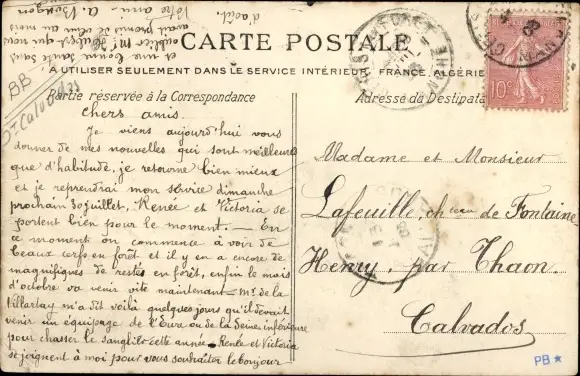 CARTE POSTALE
A UTILISER SEULEMENT DANS LE SERVICE INTÉRIEUR, FRANCE, ALGÉRIE
Partie réservée à la Correspondance
Adresse du Destinata
Chers amis.
Je viens aujourd'hui vous
donner de mes nouvelles qui sont meilleures
que d'habitude, je retourne bien mieux
et je reprendrai mon service dimanche
prochain 30 juillet, Renée et Victoria se
portent bien pour le moment. — En
ce moment on commence à voir de
beaux cerfs en forêt et il y en a encore de
magnifiques de restes en forêt, enfin le mois
d'octobre va venir vite maintenant — Mr de la
Villartay m'a dit voilà quelques jours qu'il devait
venir un équipage de l'Eure ou de la Seine inférieure
pour chasser le sanglier cette année. Renée et Victoria
se joignent à moi pour vous souhaiter le bonjour
et une bonne santé sans
oublier Mr
avait promis de venir au mois
d'août.
Votre ami
Madame et Monsieur
Lafeuille, chteau de Fontaine
Henry, par Thaon.
Calvados
BB
Calvados
10c
PB★